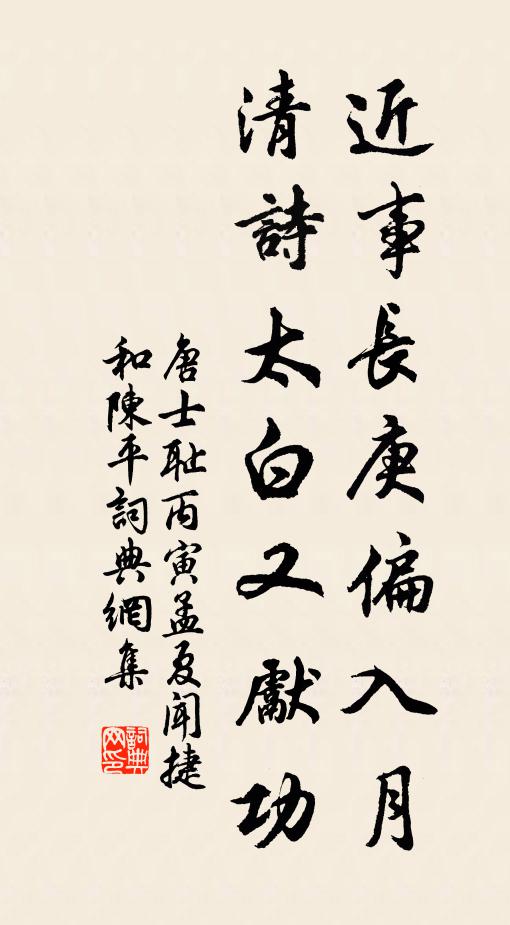 近事長庚偏入月
清詩太白又獻功
唐士耻丙寅孟夏聞捷
和陳平詞典網集
詞典
网印